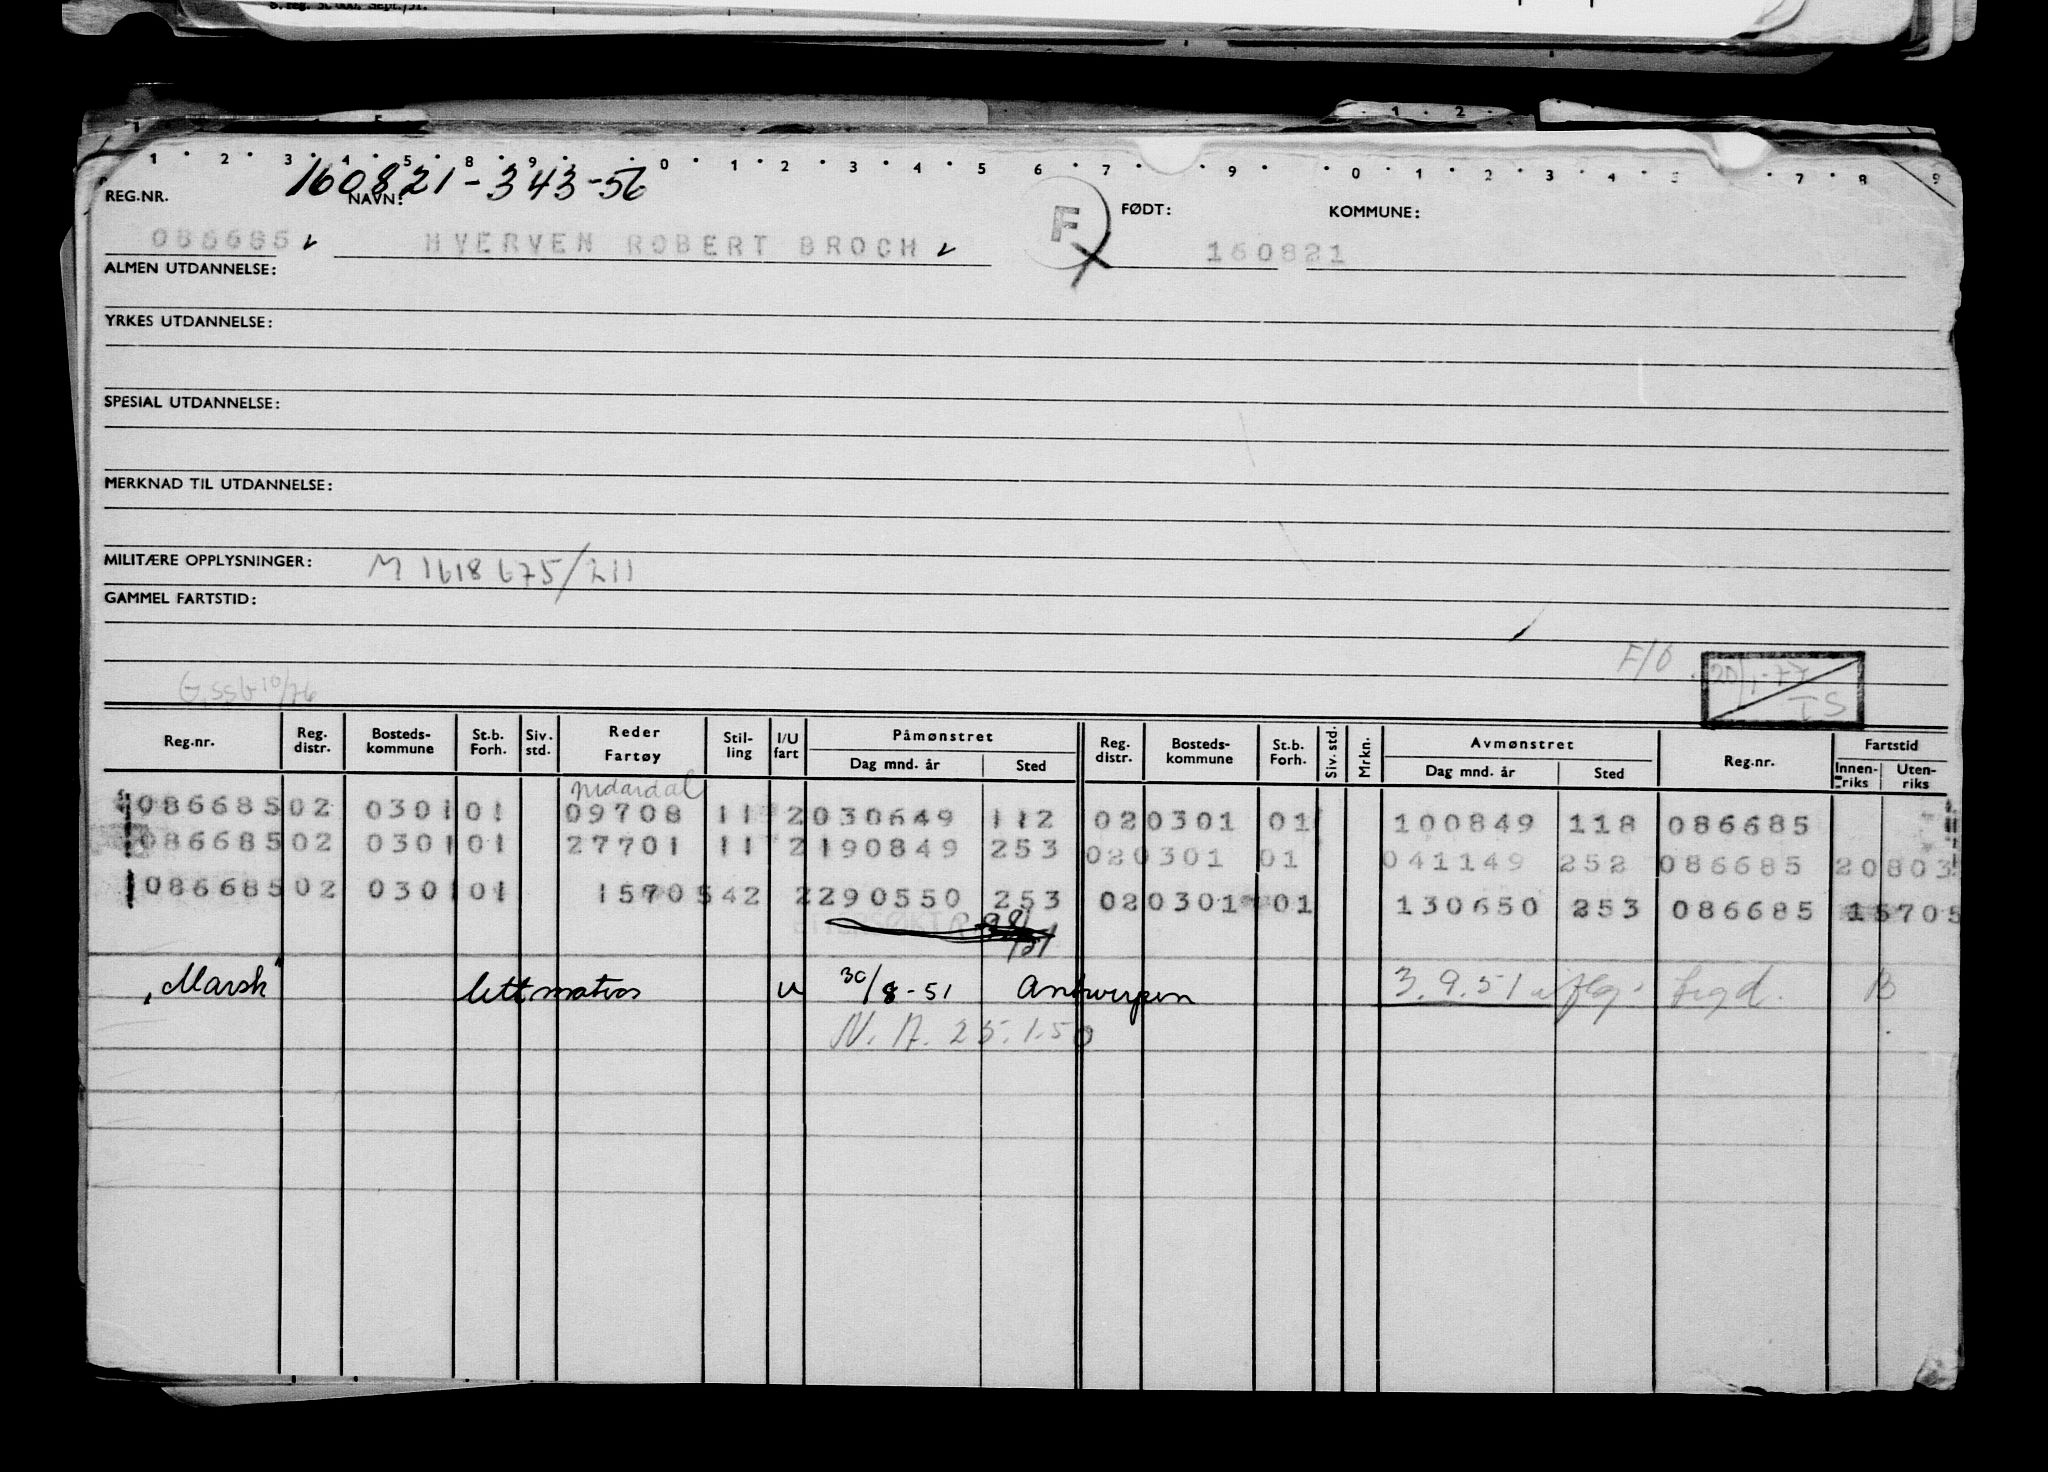 S. reg. 51. 000. Sept./51.
1 2 3 4 5 8 9 0 1 2 3 4 5 6 7 9 0 1 2 3 4 5 7 8 9
160821-343-56
REG.NR. NAVN: FØDT: KOMMUNE:
086685 HVERVEN ROBERT BROCH F 160821
ALMEN UTDANNELSE:
YRKES UTDANNELSE:
SPESIAL UTDANNELSE:
MERKNAD TIL UTDANNELSE:
MILITÆRE OPPLYSNINGER: M 1618675/211
GAMMEL FARTSTID:
F/O 20/1-77
10/76 IS
Reg.nr. Reg. distr. Bosteds-kommune St.b. Forh. Siv. std. Reder Fartøy Stil-ling I/U fart Påmønstret Dag mnd. år Sted Reg. distr. Bosteds-kommune St.b. Forh. Siv. std. Mrkn. Avmønstret Dag mnd. år Sted Reg.nr. Fartstid Innen-riks Uten-riks
nidardal
086685 02 0301 01 09708 11 2 030649 112 02 0301 01 100849 118 086685
086685 02 0301 01 27701 11 2 190849 253 02 0301 01 041149 252 086685 20803
086685 02 0301 01 15705 42 2 290550 253 02 0301 01 130650 253 086685 15705
"Marsk" lettmatros u 30/8-51 Antwerpen 3.9.51 B
N. A. 25.1.50